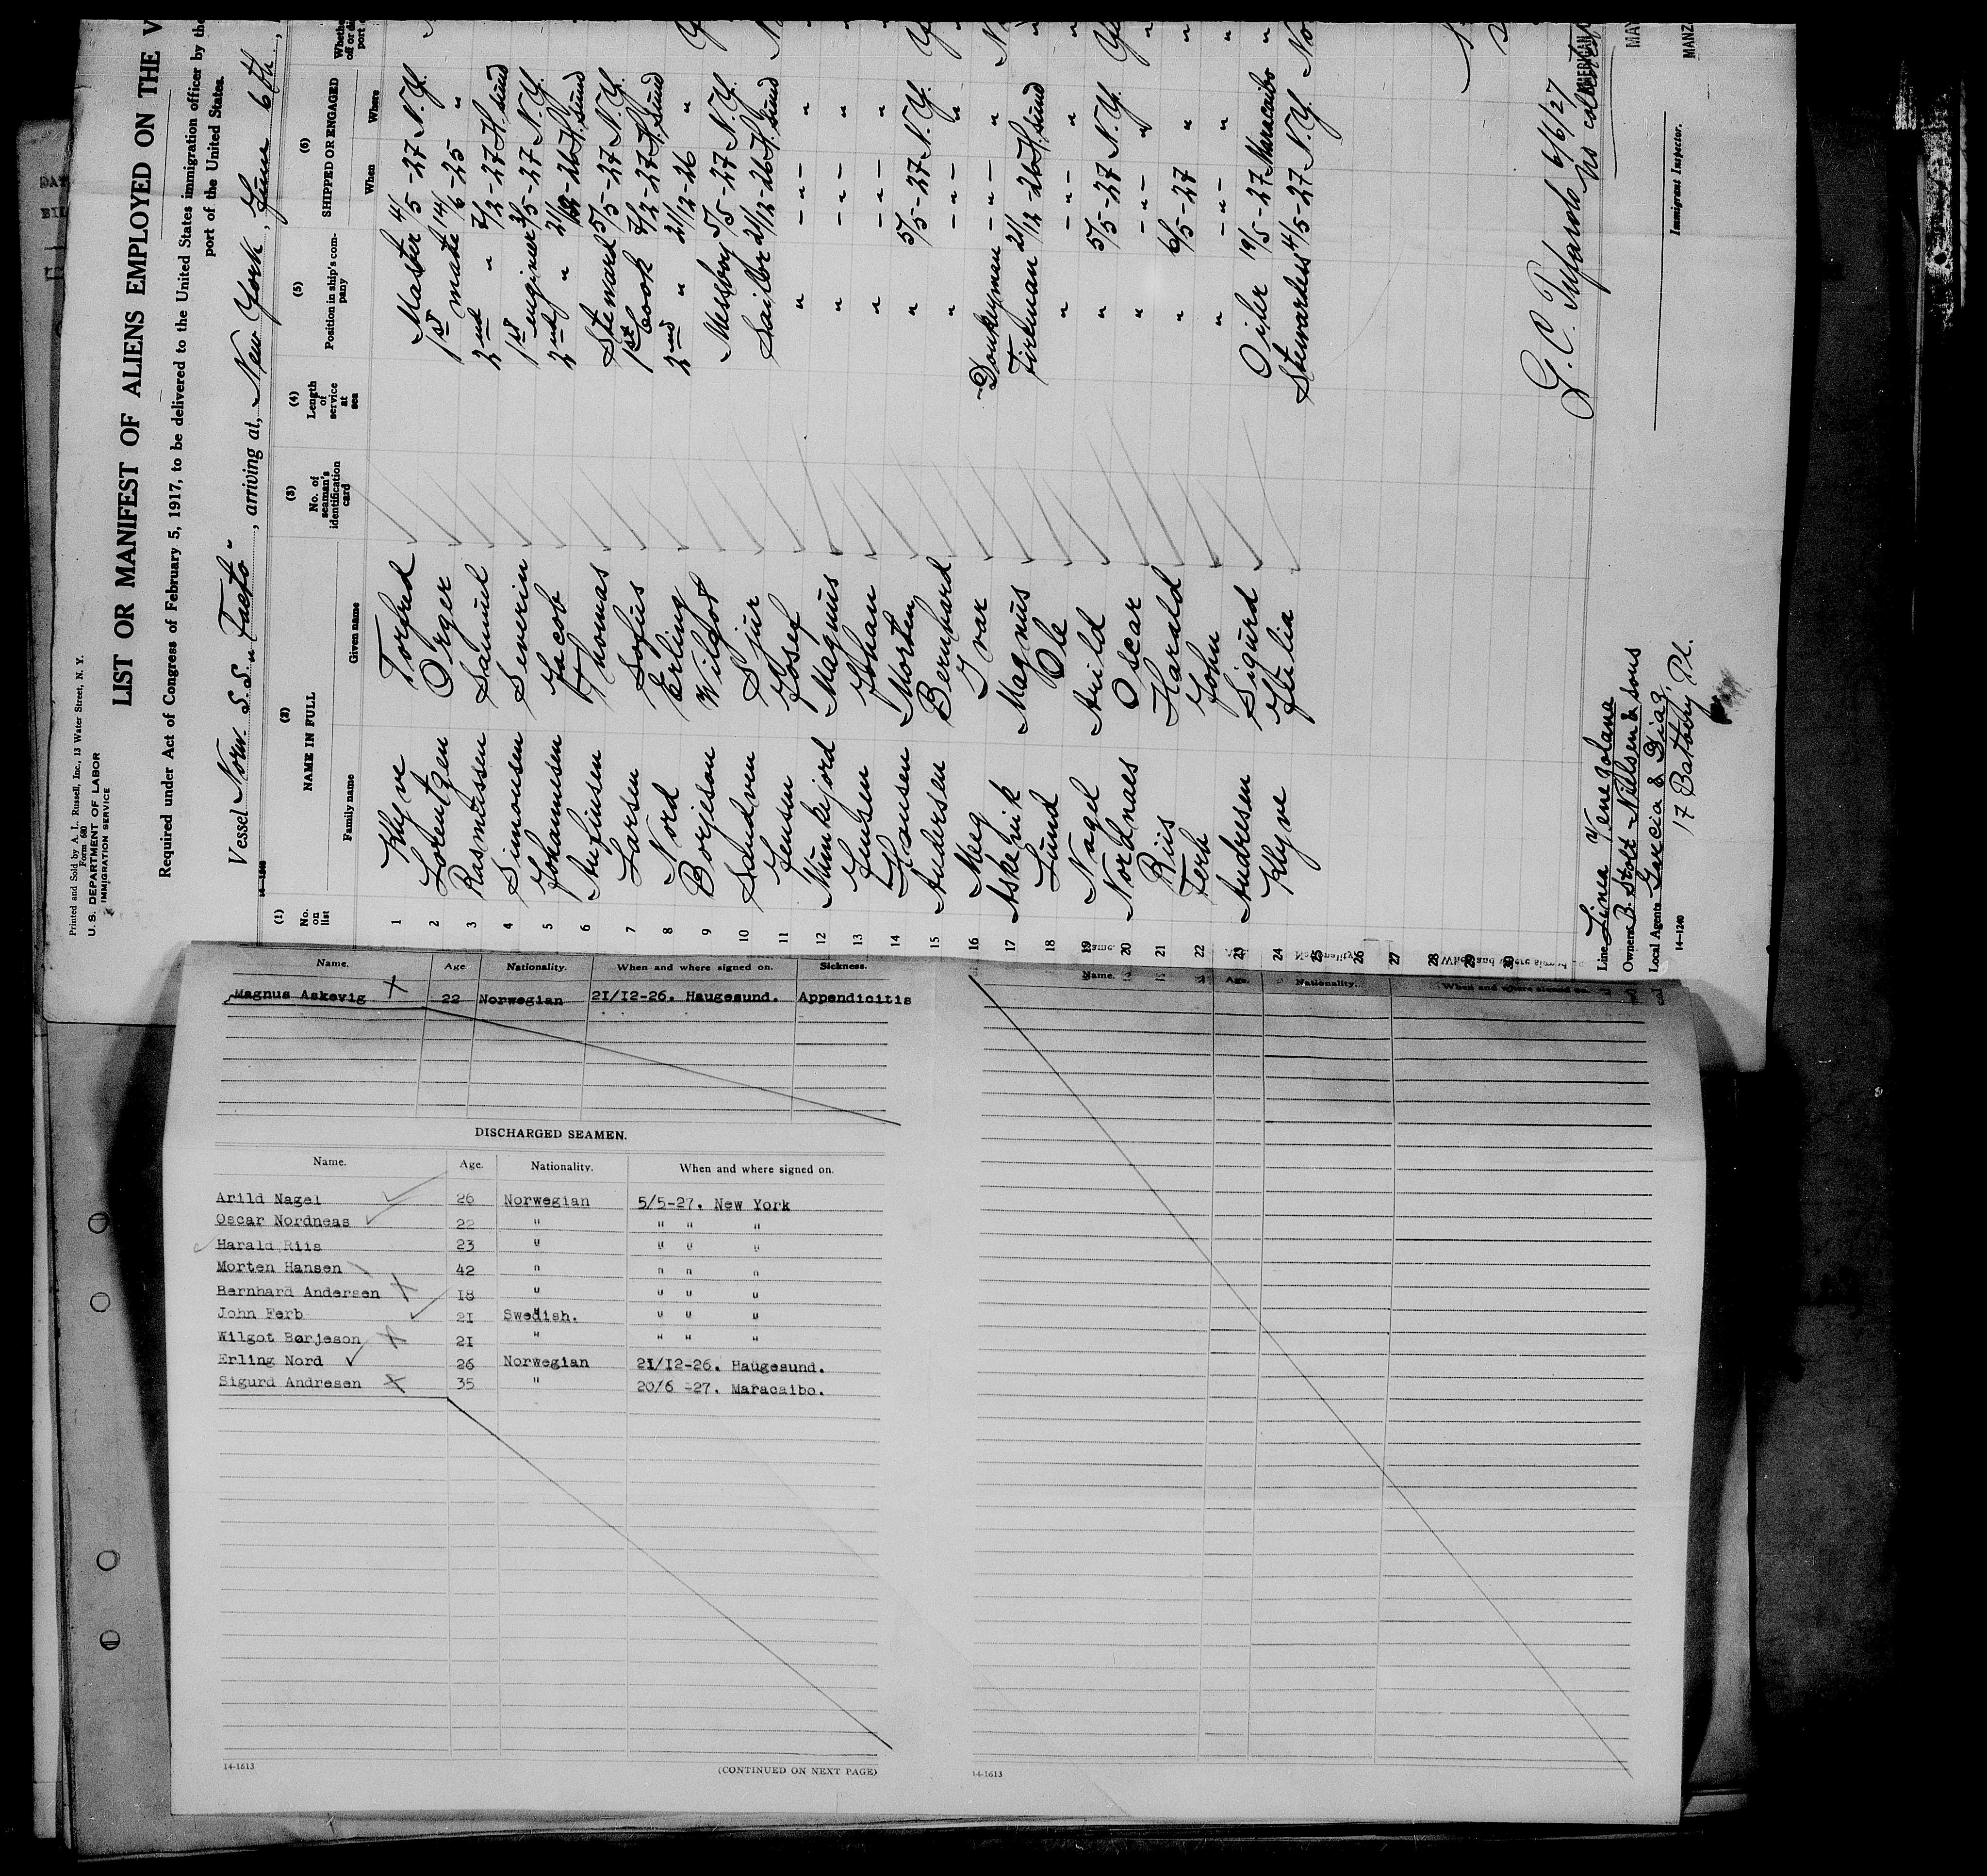 Printed and Sold by A. L. Russell, Inc., 13 Water Street, N. Y.
Form 680
U. S. DEPARTMENT OF LABOR
IMMIGRATION SERVICE
LIST OR MANIFEST OF ALIENS EMPLOYED ON THE V
Required under Act of Congress of February 5, 1917, to be delivered to the United States immigration officer by the
port of the United States.
Vessel Norw. S.S. , arriving at, New York, June 6th,
(1) (2) (3) (4) (5) (6)
No. on list NAME IN FULL No. of seaman's identification card Length of service at sea Position in ship's company SHIPPED OR ENGAGED
Family name Given name When Where
1 Klyve Torfred Master 4/5-27 N.Y.
2 Lorentzen Orger 1st mate 14/6-25 "
3 Rasmussen Samuel 2nd " 2/12-27 H.sund
4 Simonsen Severin 1st engineer 3/5-27 N.Y.
5 Johannesen Jacob 2nd " 21/12-26 H.sund
6 Anfinsen Thomas Steward 5/5-27 N.Y.
7 Larsen Sofus 1st Cook 2/12-27 H.sund
8 Nord Erling 2nd " 21/12-26 "
9 Borjeson Wilgot Messboy 5/5-27 N.Y.
10 Sandven Sjur Sailor 21/12-26 H.sund
11 Jensen Josef " -"- "
12 Munkejord Magnus " -"- "
13 Jensen Johan " -"- "
14 Hansen Morten " 5/5-27 N.Y.
15 Andersen Bernhard " -"- "
16 Meeg Ivar Donkeyman -"- "
17 Askevik Magnus Fireman 21/12-26 H.sund
18 Lund Ole " -"- "
19 Nagel Arild " 5/5-27 N.Y.
20 Nordnaes Oscar " -"- "
21 Riis Harald " 6/5-27 "
22 Ferb John " -"- "
23 Andresen Sigurd Oiler 19/5-27 Maracaibo
24 Klyve Julia Stewardess 4/5-27 N.Y. No
25
26
27
28
29
30
6/6/27
Line Linea Venezolana
Owners B. Stolt-Nielsen & Sons
Local Agents Garcia & Diaz,
17 Battery Pl.
14-1240
Immigrant Inspector.
Name. Age. Nationality. When and where signed on. Sickness.
Magnus Askevig 22 Norwegian 21/12-26. Haugesund. Appendicitis
DISCHARGED SEAMEN.
Name. Age. Nationality. When and where signed on.
Arild Nagel 26 Norwegian 5/5-27. New York
Oscar Nordneas 22 " " " "
Harald Riis 23 " " " "
Morten Hansen 42 " " " "
Bernhard Andersen 18 " " " "
John Ferb 21 Swedish. " " "
Wilgot Børjeson 21 " " " "
Erling Nord 26 Norwegian 21/12-26. Haugesund.
Sigurd Andresen 35 " 20/6 -27. Maracaibo.
14-1613
(CONTINUED ON NEXT PAGE)
Name. Age. Nationality. When and where signed on.
14-1613